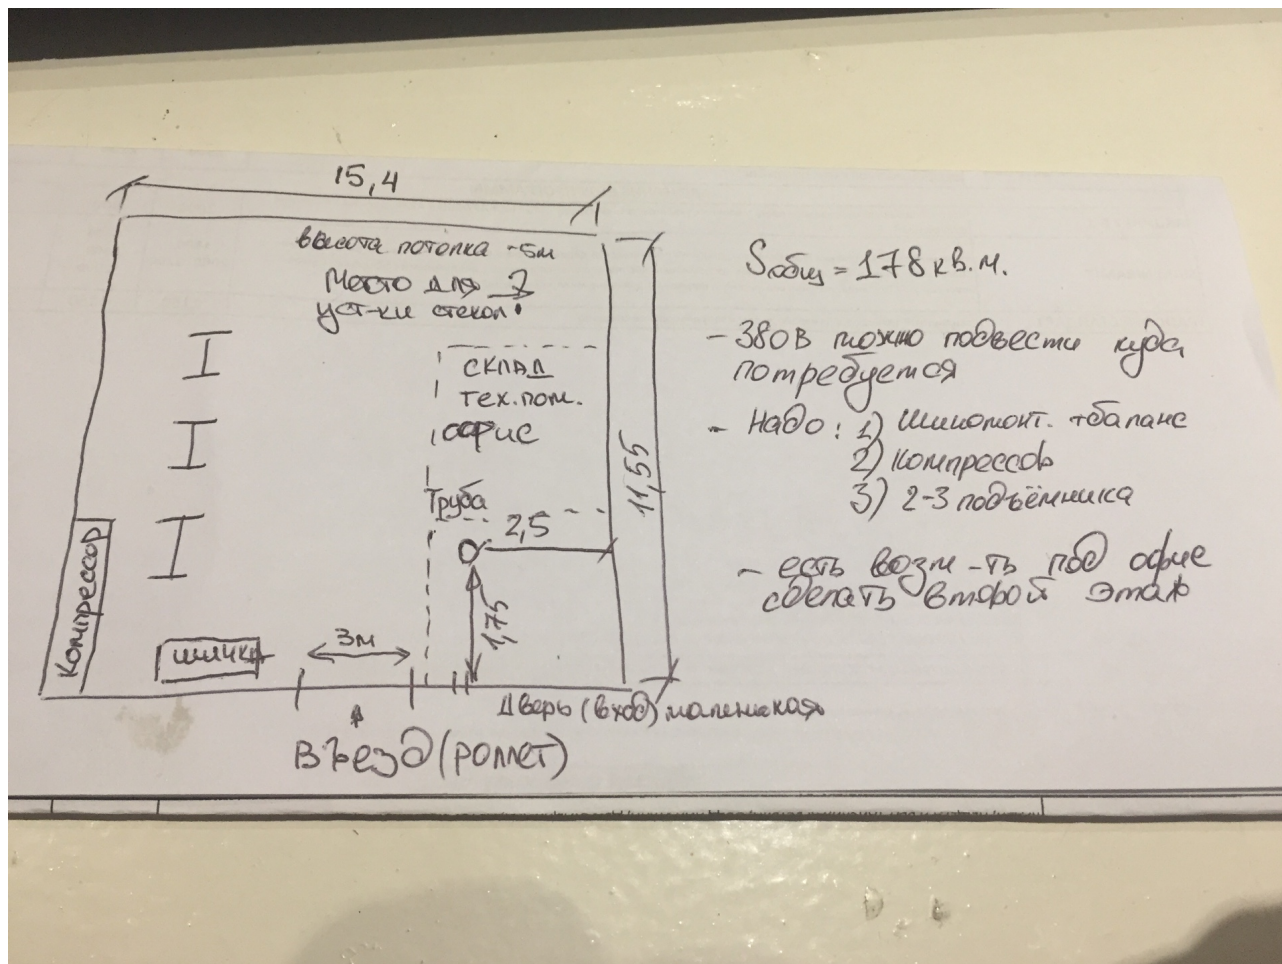 15,4
высота потолка -5м
Место для ?
уст-ки стекол
склад
тех.пом.
офис
Труба
2,5
11,55
1,75
Компрессор
шинка
3м
Дверь (вход) маленькая
Въезд (роллет)
Sобщ = 178 кв.м.
- 380В можно подвести куда
потребуется
- Надо: 1) Шиномонт. +баланс
2) Компрессор
3) 2-3 подъёмника
- есть возм-ть под офис
сделать второй этаж